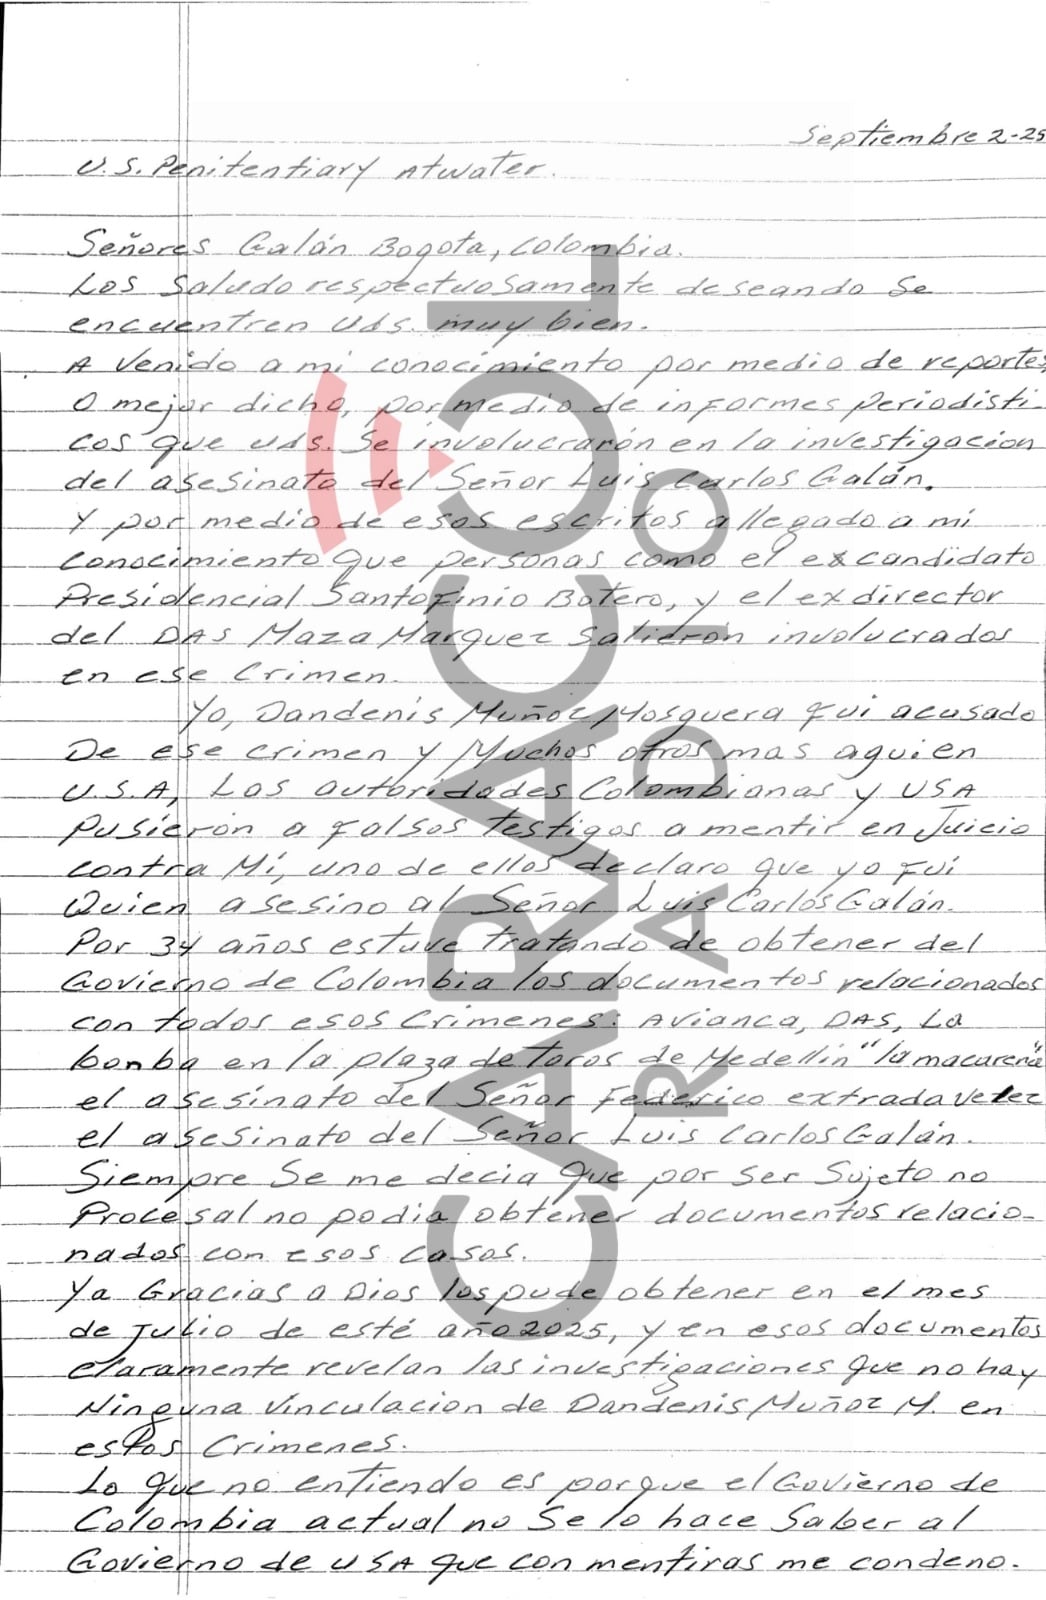 Septiembre 2-25
U.S. Penitentiary Atwater.
Señores Galán Bogota, Colombia.
Los Saludo respectuosamente deseando Se
encuentren Uds. muy bien.
A venido a mi conocimiento por medio de reportes,
O mejor dicho, por medio de informes Periodisti-
cos que uds. Se involucrarón en la investigacion
del asesinato del Señor Luis Carlos Galán.
Y por medio de esos escritos allegado a mi
conocimiento que personas como el excandidato
Presidencial Santofinio Botero, y el exdirector
del DAS Maza Marquez Salierón involucrados
en ese Crimen.
Yo, Dandenis Muñoz Mosquera fui acusado
De ese crimen y Muchos otros mas aquien
U.S.A, Las autoridades Colombianas y USA
Pusierón a falsos testigos a mentir en Juicio
contra Mí, uno de ellos declaro que yo fui
Quien asesino al Señor Luis Carlos Galán.
Por 34 años estuve tratando de obtener del
Govierno de Colombia los documentos relacionados
con todos esos Crimenes: Avianca, DAS, La
bonba en la plaza de Toros de Medellin "la macarena"
el asesinato del Señor Federico extrada Velez
el asesinato del Señor Luis Carlos Galán.
Siempre Se me decia que por ser Sujeto no
Procesal no podia obtener documentos relacio-
nados con esos casos.
Ya Gracias a Dios los pude obtener en el mes
de Julio de esté año 2025, y en esos documentos
claramente revelan las investigaciones que no hay
Ninguna vinculacion de Dandenis Muñoz M. en
estos Crimenes.
Lo que no entiendo es porque el Govierno de
Colombia actual no Se lo hace Saber al
Govierno de USA que con mentiras me condeno.
CARACOL
RADIO